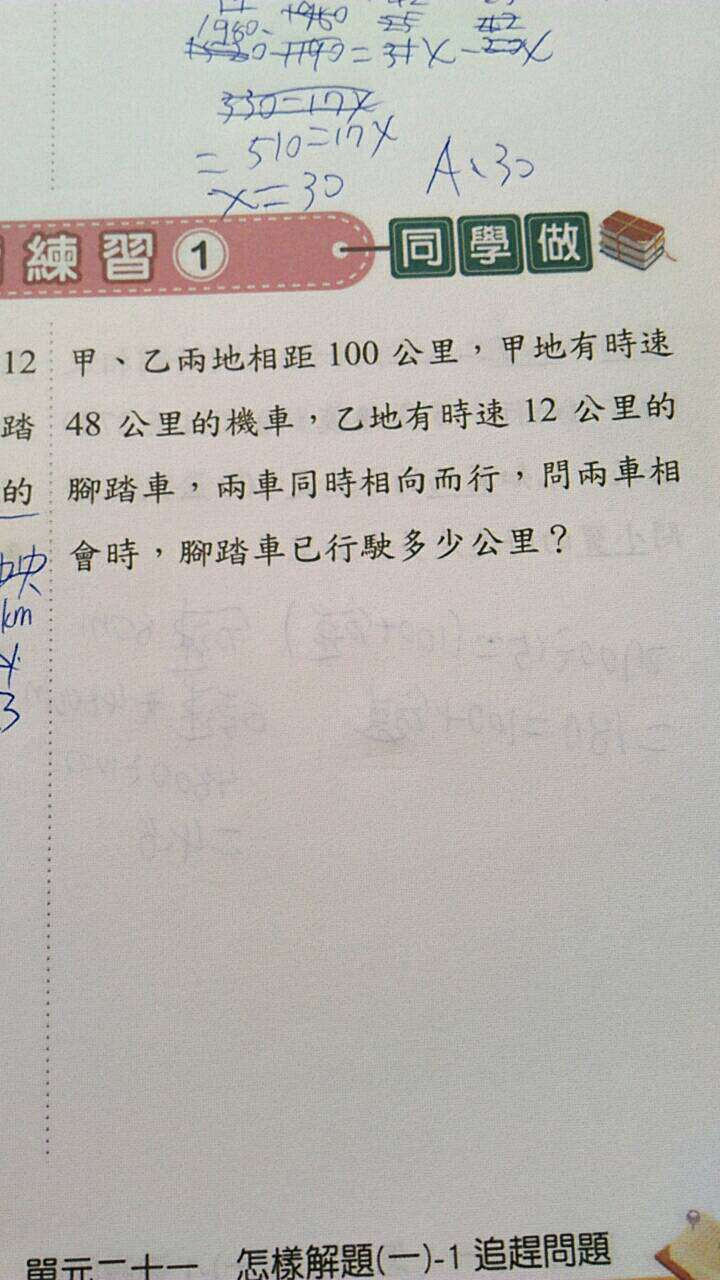 1980-
=31X-
330=17X
=510=17X
x=30
A、30
練習1
同學做
12
踏
的
km
3
甲、乙兩地相距100公里，甲地有時速
48公里的機車，乙地有時速12公里的
腳踏車，兩車同時相向而行，問兩車相
會時，腳踏車已行駛多少公里？
單元二十一 怎樣解題(一)-1 追趕問題